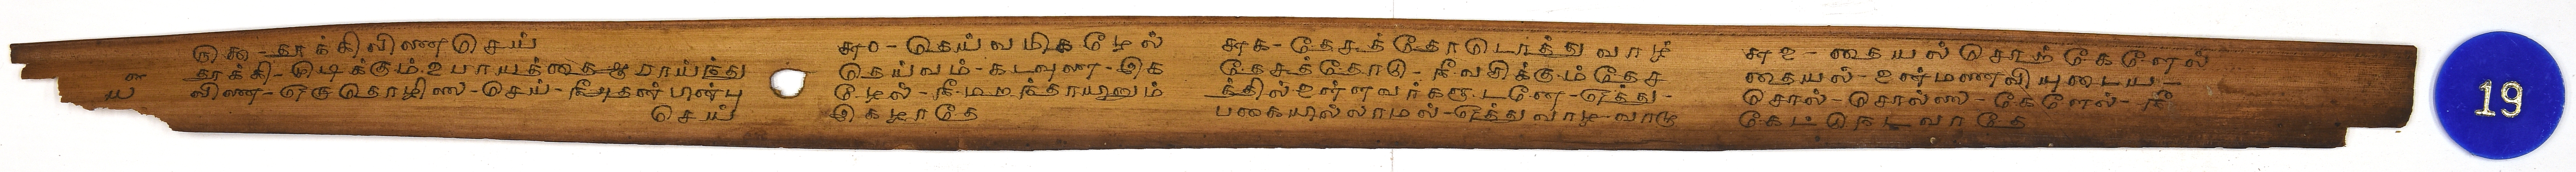 ௫௯-தூக்கிவினைசெய்
தூக்கி-முடிக்கும்உபாயத்தைஆராய்ந்து
வினை-ஒருதொழிலை-செய்-நீஅதன்பின்பு
செய்
௬0-தெய்வமிகழேல்
தெய்வம்-கடவுளை-இக
ழேல்-நீமறந்தாயினும்
இகழாதே
௬௧-தேசத்தோடொத்துவாழ்
தேசத்தோடு-நீவசிக்கும்தேச
த்தில்உள்ளவர்களுடனே-ஒத்து-
பகையில்லாமல்-ஒத்துவாழ-வாழு
௬௨-தையல்சொற்கேளேல்
தையல்-உன்மனைவியுடைய-
சொல்-சொல்லை-கேளேல்-நீ
கேட்டுநடவாதே
19